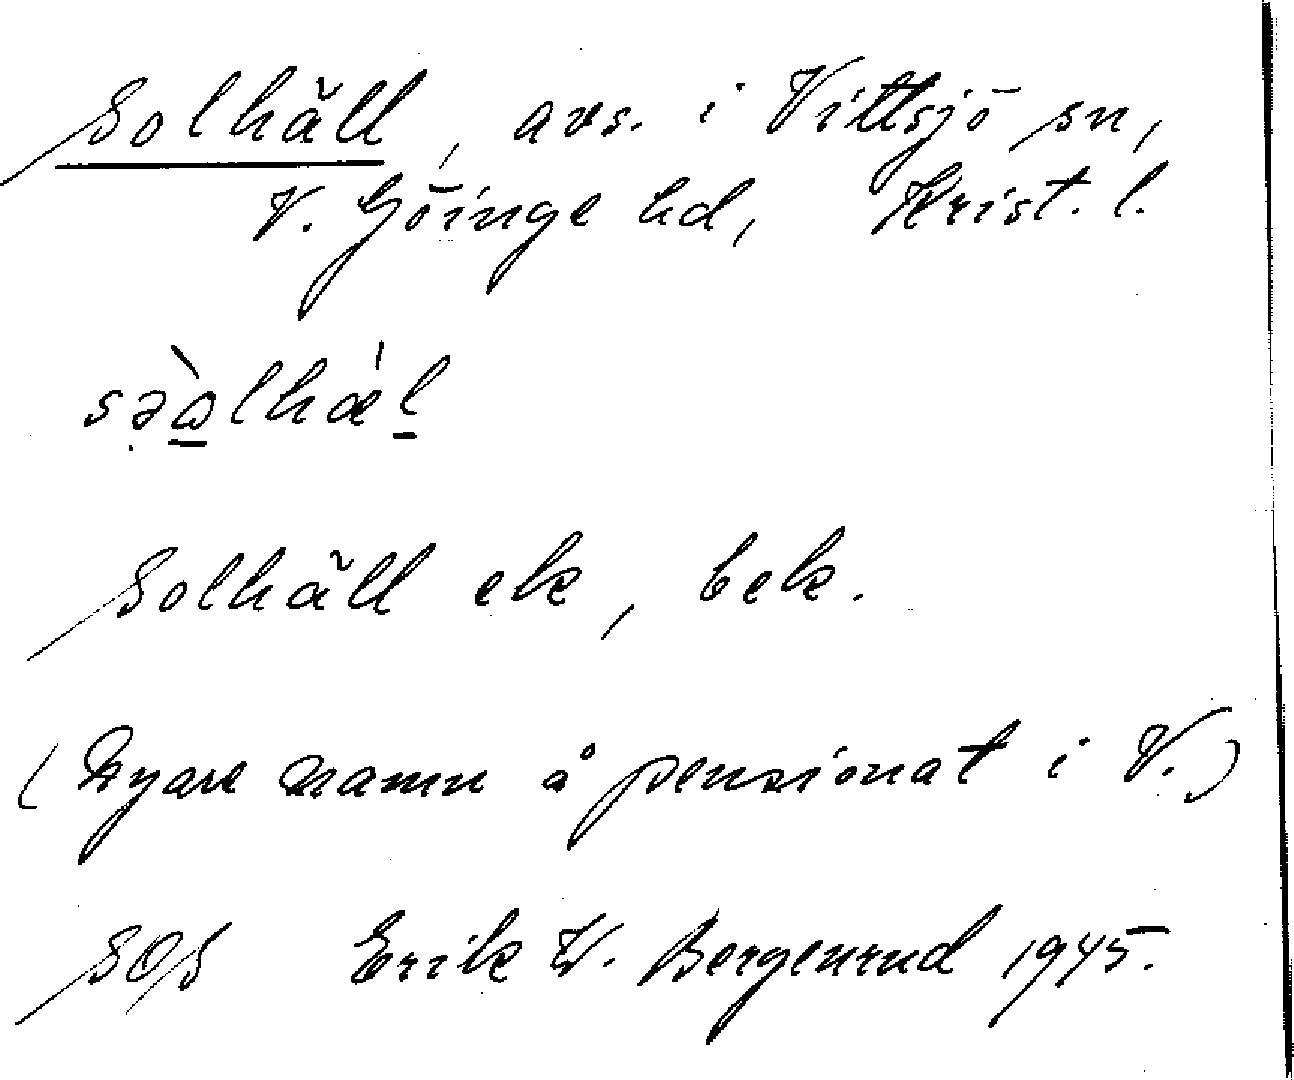 Solhäll, avs. i Vittsjö sn,
V. Göinge hd, Krist. l.
sə̣ὼ̲lhǽl̲
Solhäll ek, bek.
(Nyare namn å pensionat i V.)
SOS Erik W. Bergenrud 1945.